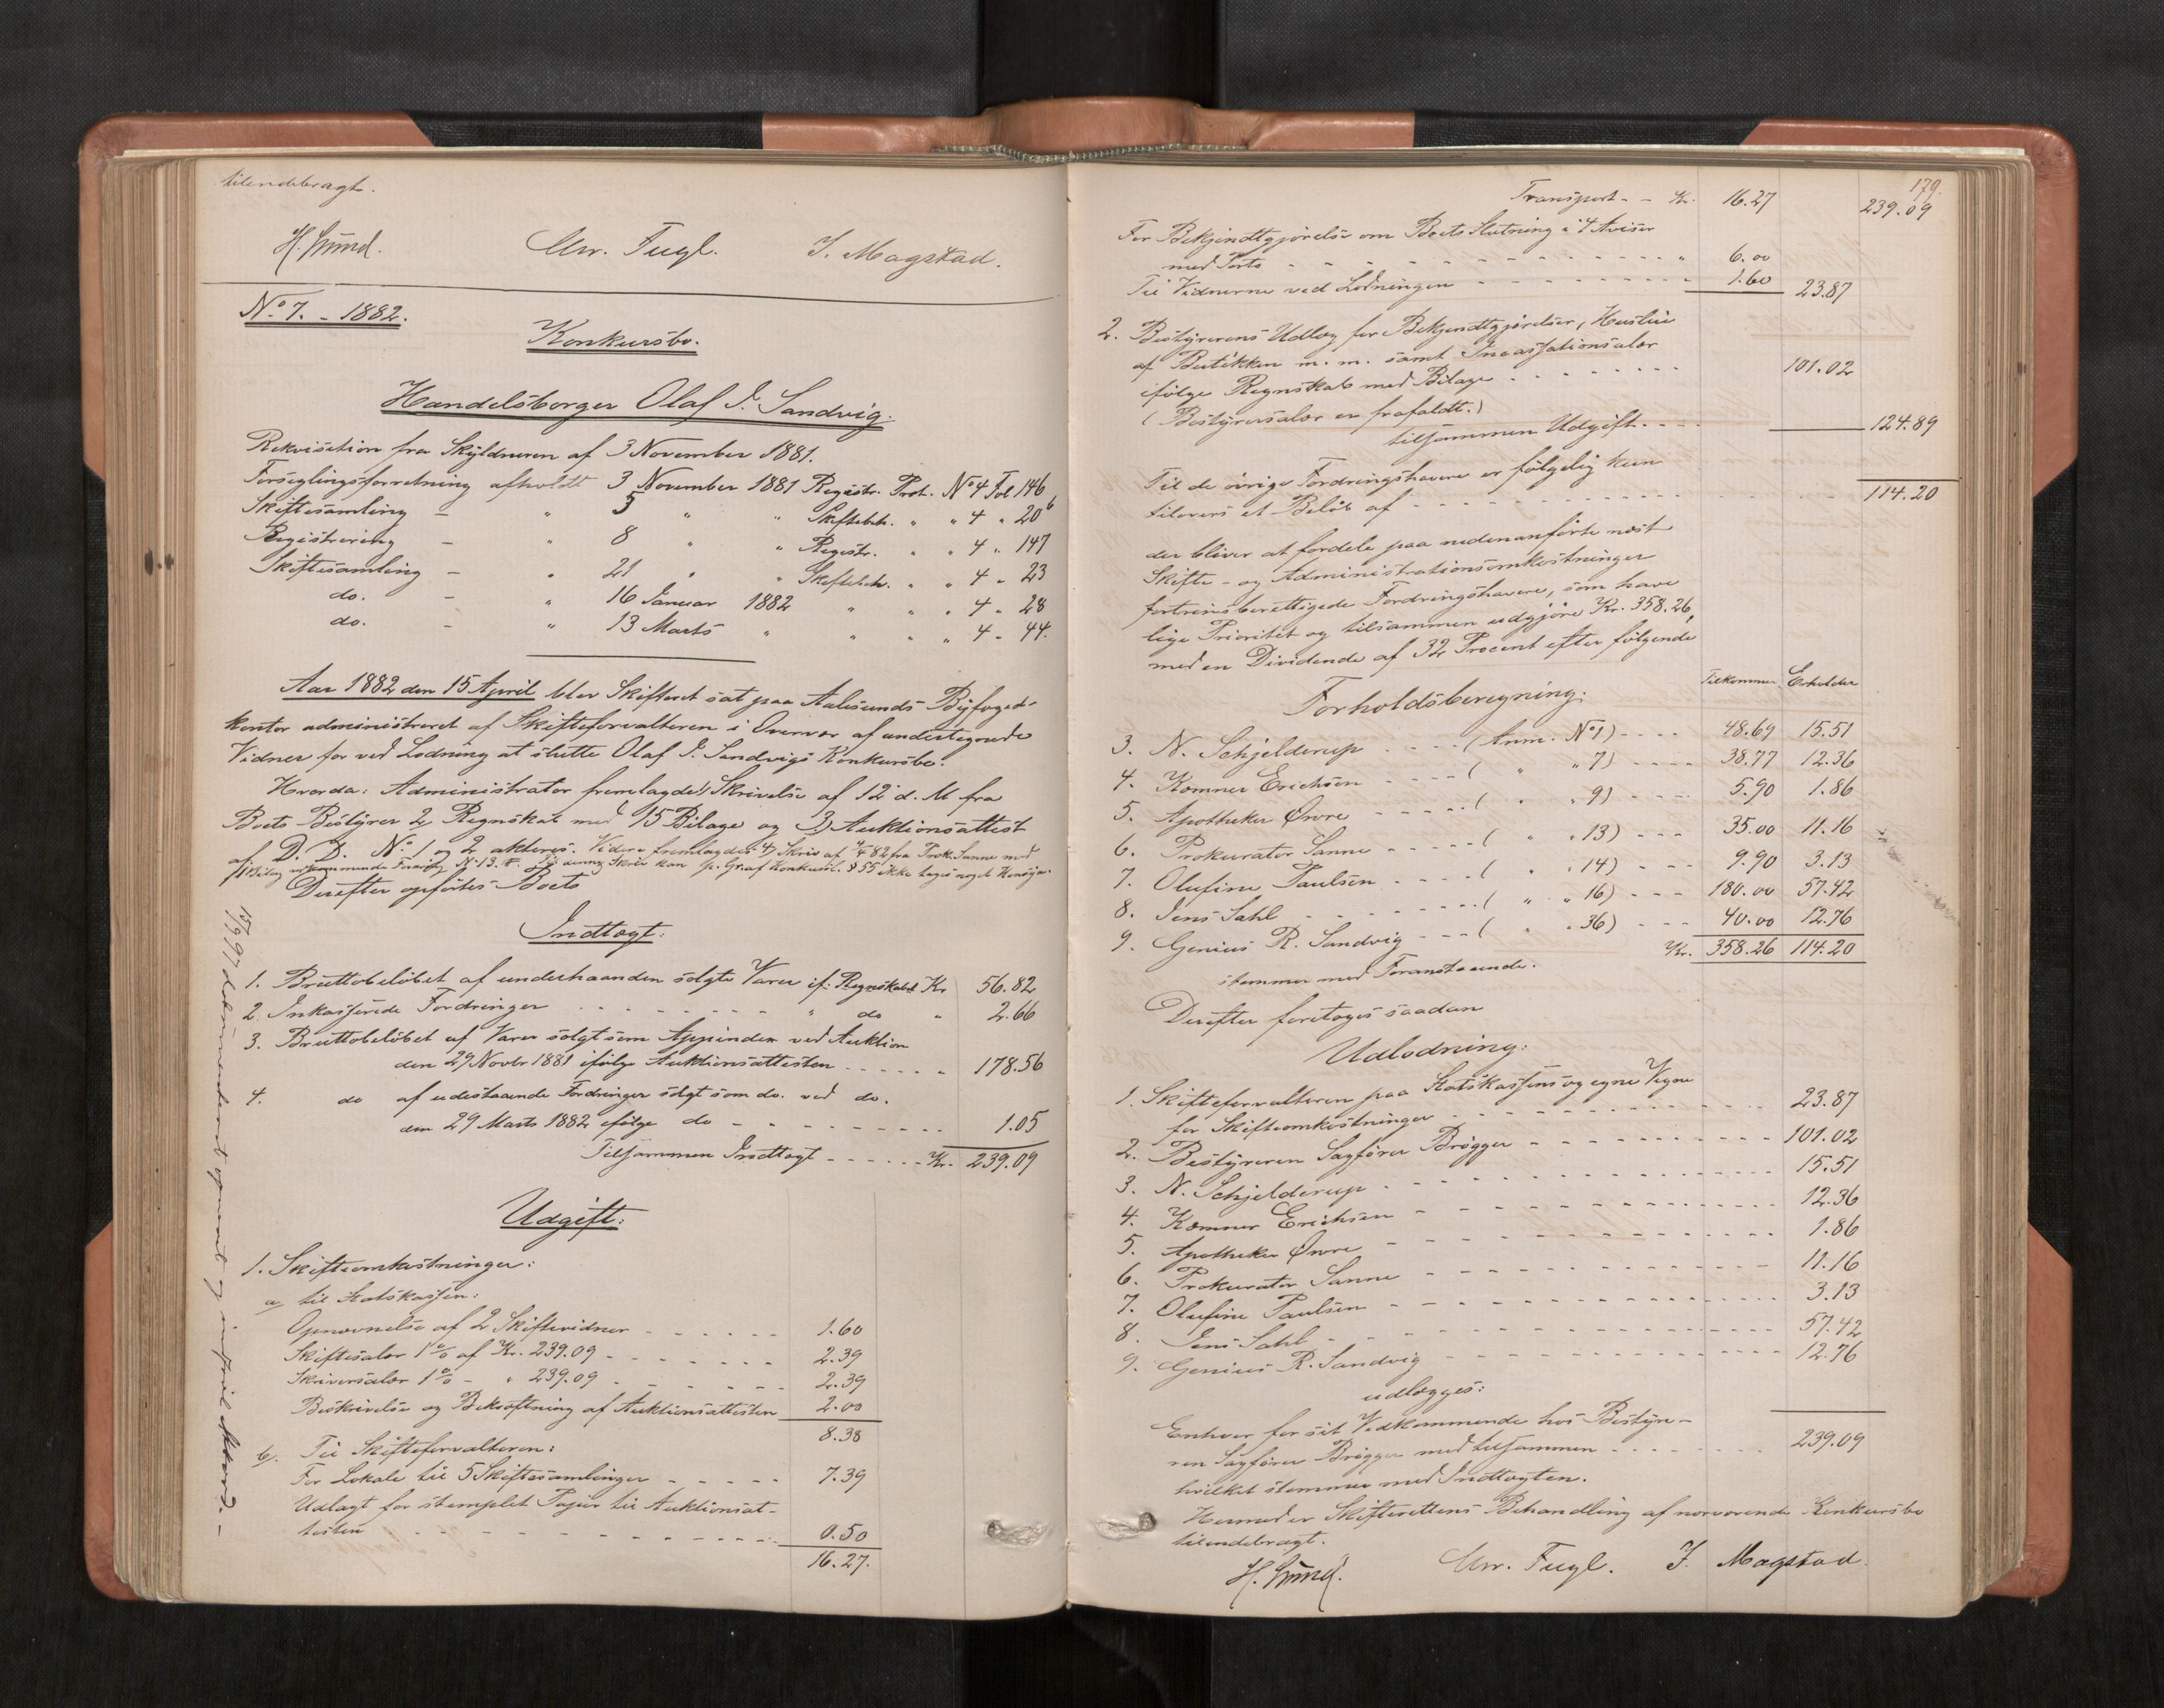 tilendebragt.
H. Chr. Fugl. I. Magstad.
No. 7. - 1882.
Konkursbo.
Handelsborger Olaf I. Sandvig.
Rekvisition fra Skyldneren af 3 November 1881.
Forseglingsforretning afholdt 3 November 1881 Registr. Prot. No 4 Fol 146
Skiftesamling - " 5 " " Skiftebeh. " " 4 " 20 b
Registrering - " 8 " " Registr. " " 4 " 147
Skiftesamling - " 21 " " Skiftebeh. " " 4 " 23
do. - " 16 Januar 1882 " " " 4 " 28
do. - " 13 Marts " " " " 4 " 44.
Aar 1882 den 15 April blev Skifteret sat paa Aalesunds Byfoged-
kontor administreret af Skifteforvalteren i Overvær af undertegnede
Vidner for ved Lodning at slutte Olaf I. Sandvigs Konkursbo.
Hvorda: Administrator fremlagde 1) Skrivelse af 12 d. M fra
Boets Bestyrer 2) Regnskab med 15 Bilage og 3) Auktionsattest
af D. D. No 1 og 2 akteres. Videre fremlagdes 4) Skriv af 82 fra Prok. Sanne med
1 Bilag vedkommende Fordring No 13. denne Skriv kan Konkursl. § 55 ikke tages noget Hensyn.
Derefter opførtes Boets
Indtægt:
1. Bruttobeløbet af underhaanden solgte Varer if. Regnskabet Kr 56.82
2. Inkasserede Fordringer . . . . . . . . " do " 2.66
3. Bruttobeløbet af Varer solgt som Appinder ved Auktion
den 29 Novbr 1881 ifølge Auktionsattesten . . . . . . " 178.56
4. do af udestaaende Fordringer solgt som do. ved do.
den 29 Marts 1882 ifølge do - - - - - - - - - 1.05
Tilsammen Indtægt - - - - - - Kr. 239.09
Udgift:
1. Skifteomkostninger:
a, til Statskassen:
Opnævnelse af 2 Skiftevidner - - - - - - 1.60
Skiftesalær 1 % af Kr. 239.09 - - - - - - - 2.39
Skriversalær 1 % - " 239.09 - - - - - - - 2.39
Beskrivelse og Bekræftning af Auktionsattesten 2.00
8.38
b/. Til Skifteforvalteren:
For Lokale til 5 Skiftesamlinger - - - - - 7.39
Udlagt for stemplet Papir til Auktionsat-
testen - - - - - - - - - - - - - 0.50
16.27.
179.
Transport - - Kr. 16.27 239.09
For Bekjendtgjørelse om Boets Slutning i 4 Aviser
med Porto - - - - - - - - - - - - - " 6.00
Til Vidnerne ved Lodningen - - - - - - - " 1.60 23.87
2. Bestyrerens Udlæg for Bekjendtgjørelser, Husleie
af Butikken m. m. samt Incassationsalær
ifølge Regnskab med Bilage . . . . . . . . . 101.02
(Bestyrersalær er frafaldt.)
tilsammen Udgift. - - - 124.89
Til de øvrige Fordringshavere er følgelig kun
tilovers et Beløb af - - - - - - - - - - - 114.20
der bliver at fordele paa nedenanførte næst
Skifte- og Administrationsomkostninger
fortrinsberettigede Fordringshavere, som have
lige Prioritet og tilsammen udgjøre Kr. 358.26,
med en Dividende af 32 Procent efter følgende
Forholdsberegning: Tilkommer Erholder
3. N. Schjelderup - - - - (Anm. No 1) - - - - 48.69 15.51
4. Kæmner Erichsen - - - - ( " " 7) - - - - 38.77 12.36
5. Apotheker Øvre - - - - ( " " 9) - - - - 5.90 1.86
6. Prokurator Sanne - - - - ( " " 13) - - - 35.00 11.16
7. Olufine Paulsen - - - - ( " " 14) - - - 9.90 3.13
8. Jens Dahl - - - - - - - ( " " 16) - - - 180.00 57.42
9. Genius R. Sandvig - - - ( " " 36) - - - 40.00 12.76
Kr. 358.26 114.20
stemmer med Foranstaaende.
Derefter foretoges saadan
Udlodning:
1. Skifteforvalteren paa Statskassens og egne Vegne
for Skifteomkostninger - - - - - - - - - - - 23.87
2. Bestyreren Sagfører Brøgger - - - - - - - - - - 101.02
3. N. Schjelderup - - - - - - - - - - - - - 15.51
4. Kæmner Erichsen - - - - - - - - - - - - 12.36
5. Apotheker Øvre - - - - - - - - - - - - - 1.86
6. Prokurator Sanne - - - - - - - - - - - - 11.16
7. Olufine Paulsen - - - - - - - - - - - - - 3.13
8. Jens Dahl - - - - - - - - - - - - - - - 57.42
9. Genius R. Sandvig - - - - - - - - - - - - 12.76
udlægges:
Enhver for sit Vedkommende hos Bestyre-
ren Sagfører Brøgger med tilsammen - - - - - - - - 239.09
hvilket stemmer med Indtægten.
Hermed er Skifterettens Behandling af nærværende Konkursbo
tilendebragt.
H. Chr. Fugl. I. Magstad.